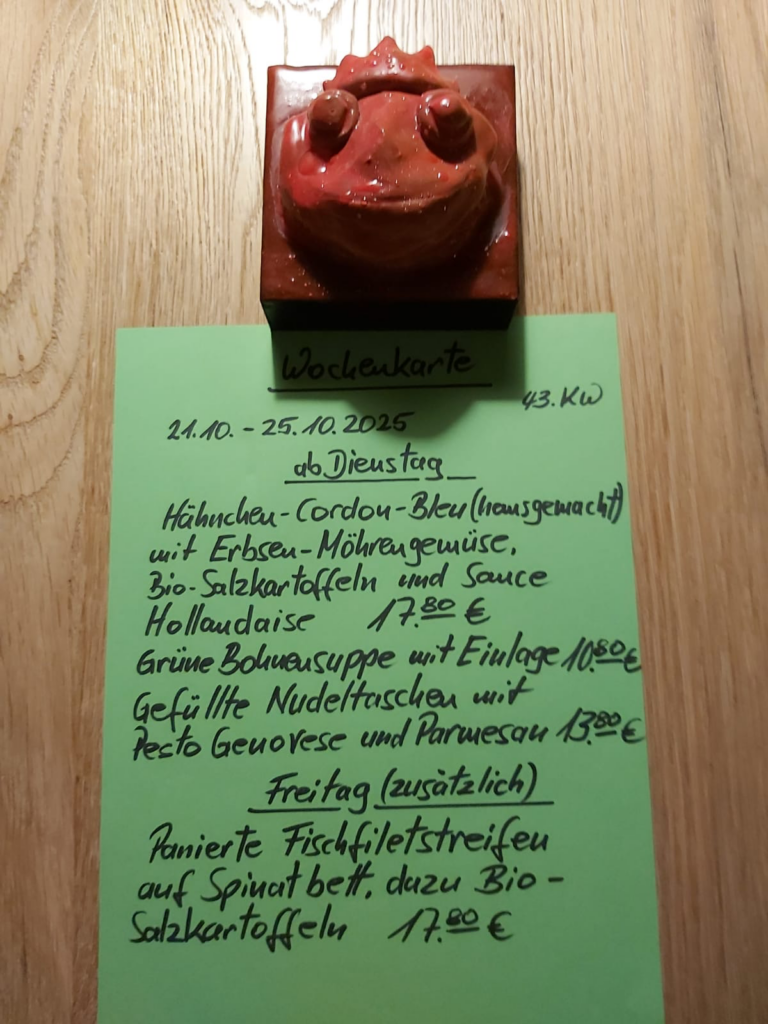 Wochenkarte
43. KW
21.10. - 25.10.2025
ab Dienstag
Hähnchen-Cordon-Bleu (hausgemacht)
mit Erbsen-Möhrengemüse,
Bio-Salzkartoffeln und Sauce
Hollandaise 17.80 €
Grüne Bohnensuppe mit Einlage 10.80 €
Gefüllte Nudeltaschen mit
Pesto Genovese und Parmesan 13.80 €
Freitag (zusätzlich)
Panierte Fischfiletstreifen
auf Spinatbett, dazu Bio-
Salzkartoffeln 17.80 €